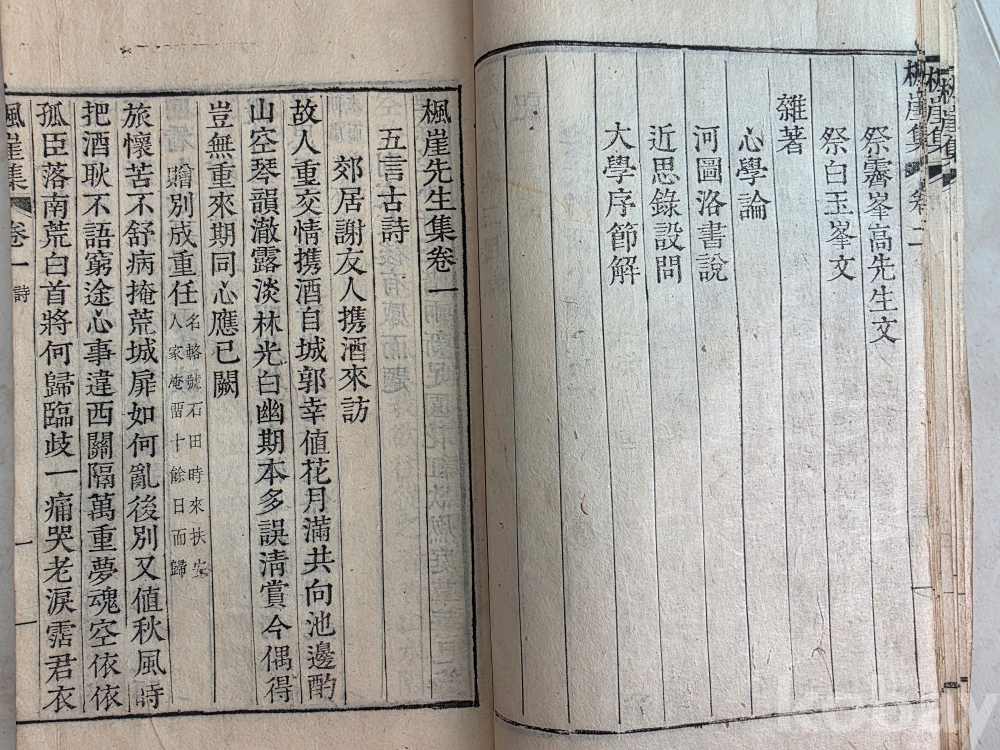 楓崖集
楓崖集
楓崖集 卷 二
祭霽峯高先生文
祭白玉峯文
雜著
心學論
河圖洛書說
近思錄設問
大學序節解
楓崖先生集卷一
五言古詩
郊居謝友人携酒來訪
故人重交情携酒自城郭幸值花月滿共向池邊酌
山空琴韻澈露淡林光白幽期本多誤淸賞今偶得
豈無重來期同心應已闕
贈別成重任
名輅號石田時來扶安
人家淹留十餘日而歸
旅懷苦不舒病掩荒城扉如何亂後別又值秋風時
把酒耿不語窮途心事違西關隔萬重夢魂空依依
孤臣落南荒白首將何歸臨歧一痛哭老淚霑君衣
楓崖集 卷一 詩 一
kobay